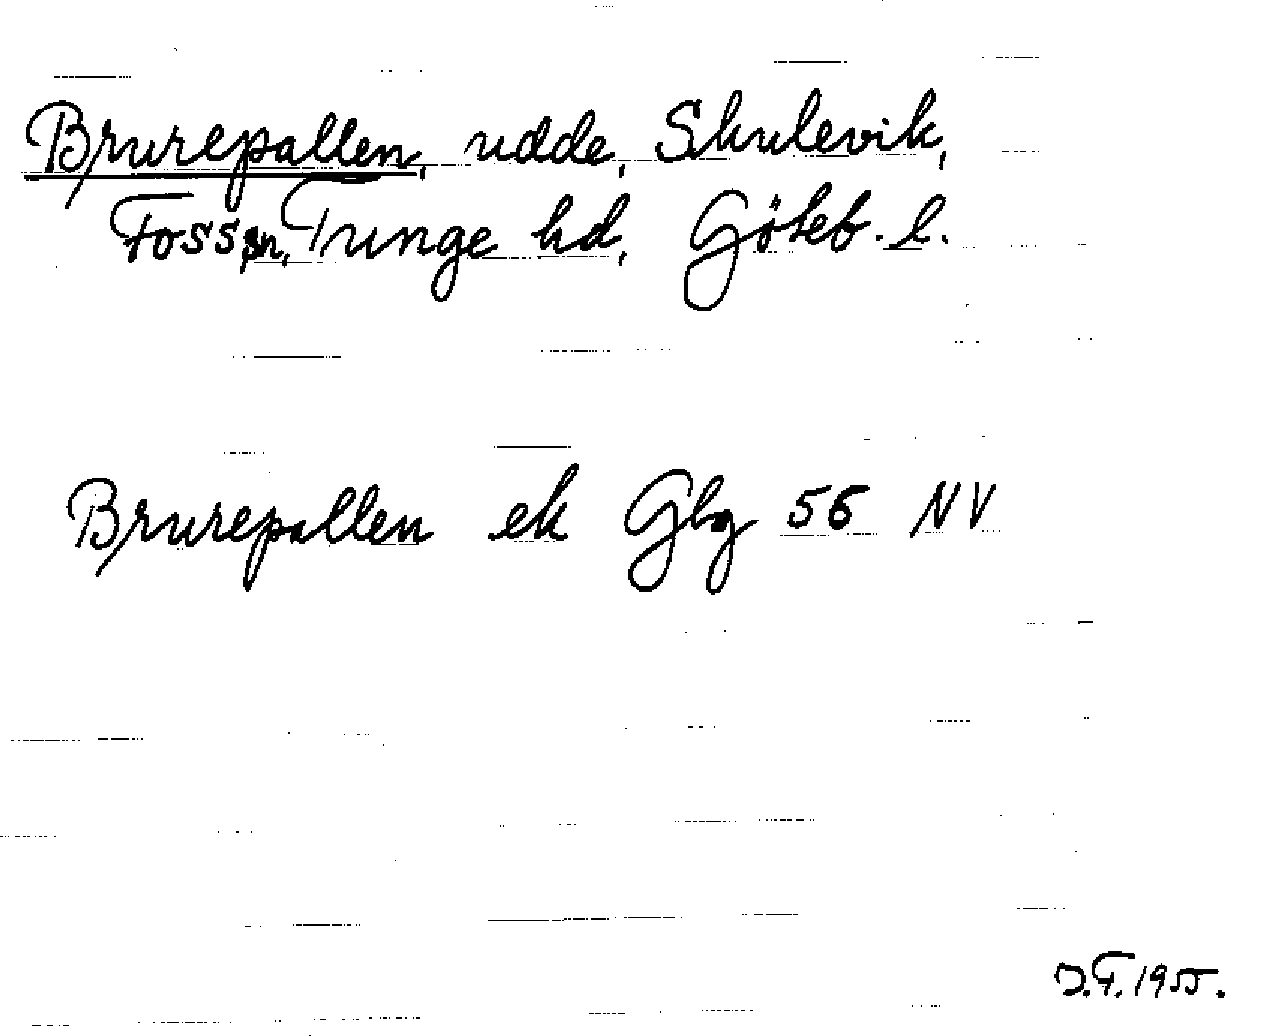 Brurepallen, udde, Skulevik,
Foss sn, Tunge hd, Göteb. l.
Brurepallen ek Gbg 56 NV
J.F. 1955.